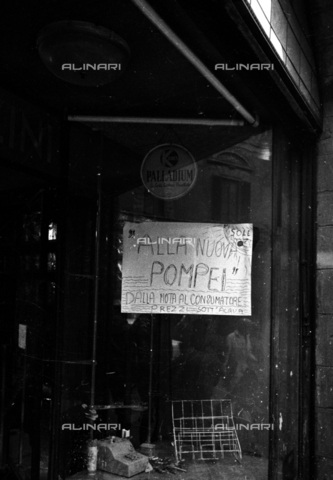 ALINARI
ALINARI
K
PALLADIUM
"ALLA NUOVA
POMPEI"
DALLA MOTA AL CONZUMATORE
PREZZI SOTT'
ALINARI
ALINARI
ALINARI
ALINARI